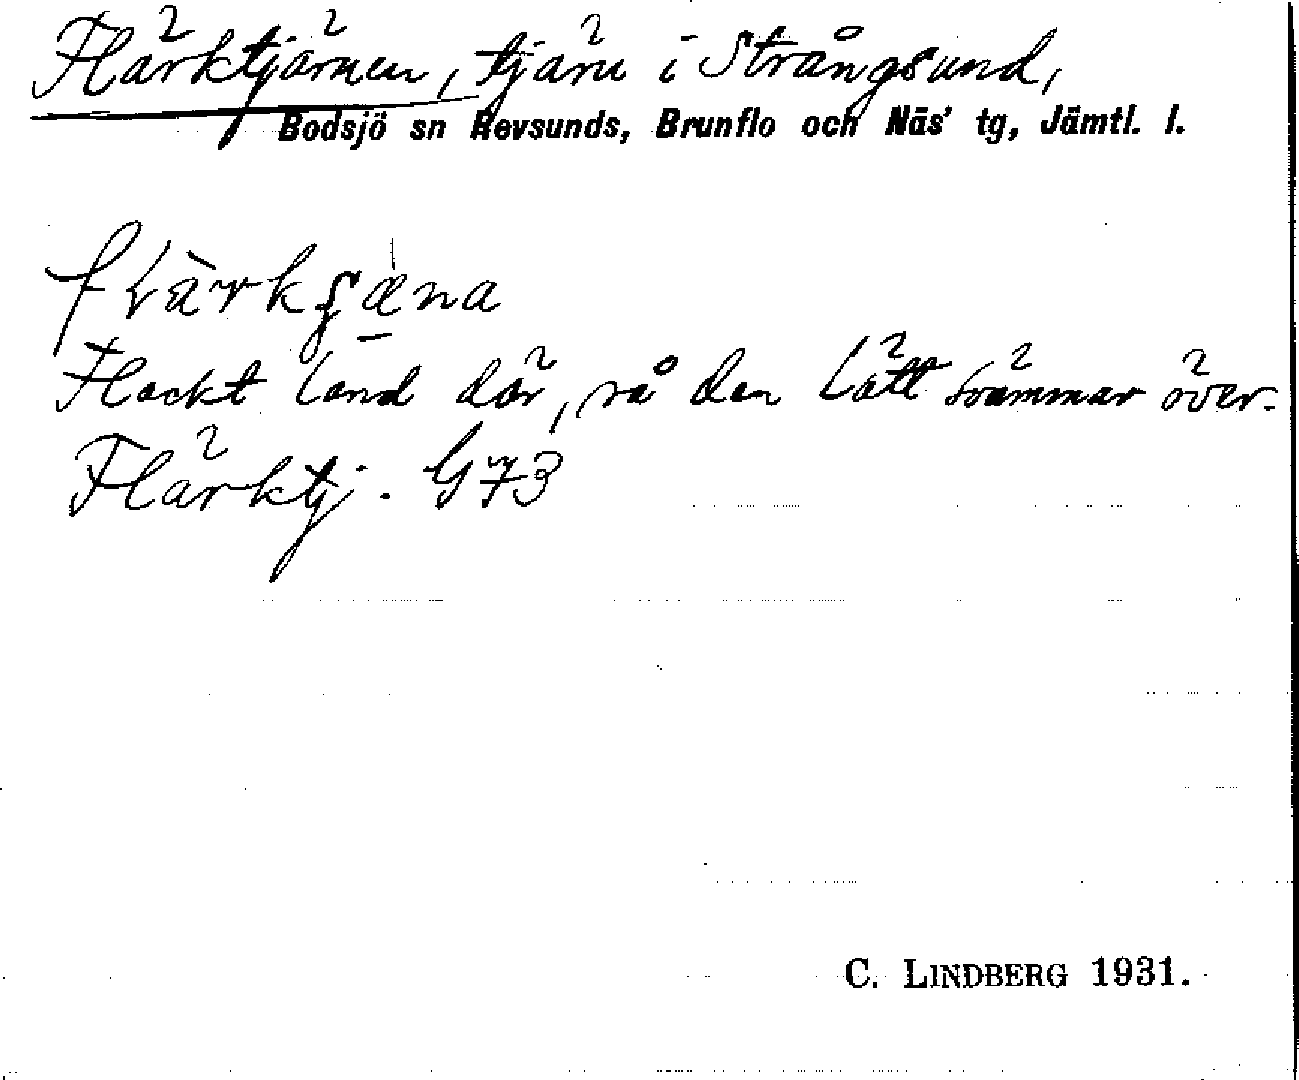 Flärktjärnen, tjärn i Strångsund,
Bodsjö sn Revsunds, Brunflo och Näs' tg, Jämtl. l.
Flackt land där, så den lätt svämmar över.
Flärktj. G73
C. LINDBERG 1931.